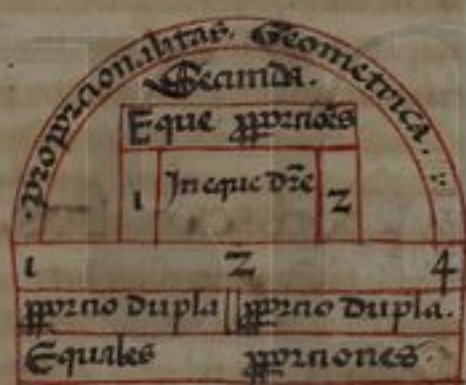 ·proporcionalitas· Geometrica·
Secunda.
Eque ꝓporcioēs
1 Ineque dr̄e 2
1 2 4
ꝓporcio dupla ꝓporcio dupla.
Equales ꝓporciones·